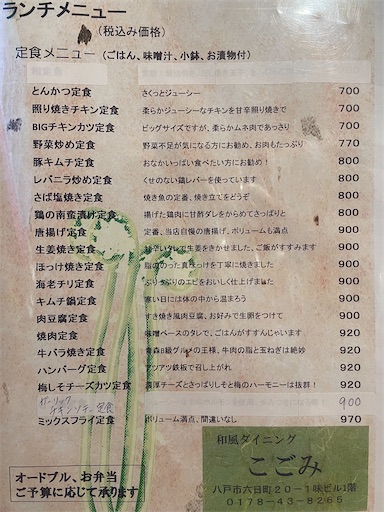 ランチメニュー
(税込み価格)
定食メニュー (ごはん、味噌汁、小鉢、お漬物付)
とんかつ定食 さくっとジューシー 700
照り焼きチキン定食 柔らかジューシーなチキンを甘辛照り焼きで 700
BIGチキンカツ定食 ビッグサイズですが、柔らかムネ肉であっさり 700
野菜炒め定食 野菜不足が気になる方にお勧め、お肉もたっぷり 770
豚キムチ定食 おなかいっぱい食べたい方にお勧め! 800
レバニラ炒め定食 くせのない鶏レバーを使っています 800
さば塩焼き定食 焼き魚の定番、焼き立てをどうぞ 800
鶏の南蛮漬け定食 揚げた鶏肉に甘酢ダレをからめてさっぱりと 800
唐揚げ定食 定番、当店自慢の唐揚げ、ボリュームも満点 900
生姜焼き定食 甘辛いタレで生姜をきかせました、ご飯がすすみます 900
ほっけ焼き定食 脂ののった真ほっけを丁寧に焼きました 900
海老チリ定食 ぷりっぷりのエビをおいしく仕上げました 900
キムチ鍋定食 寒い日には体の中から温まろう 900
肉豆腐定食 すき焼き風肉豆腐、お好みで生卵をつけて 900
焼肉定食 味噌ベースのタレで、ごはんがすすんじゃいます 920
牛バラ焼き定食 青森B級グルメの王様、牛肉の脂と玉ねぎは絶妙 920
ハンバーグ定食 アツアツ鉄板で召し上がれ 920
梅しそチーズカツ定食 濃厚チーズとさっぱりしそと梅のハーモニーは抜群! 920
ガーリックチキンソテー定食 900
ミックスフライ定食 ボリューム満点、間違いなし 970
オードブル、お弁当
ご予算に応じて承ります
和風ダイニング
こごみ
八戸市六日町20-1味ビル1階
0178-43-8265